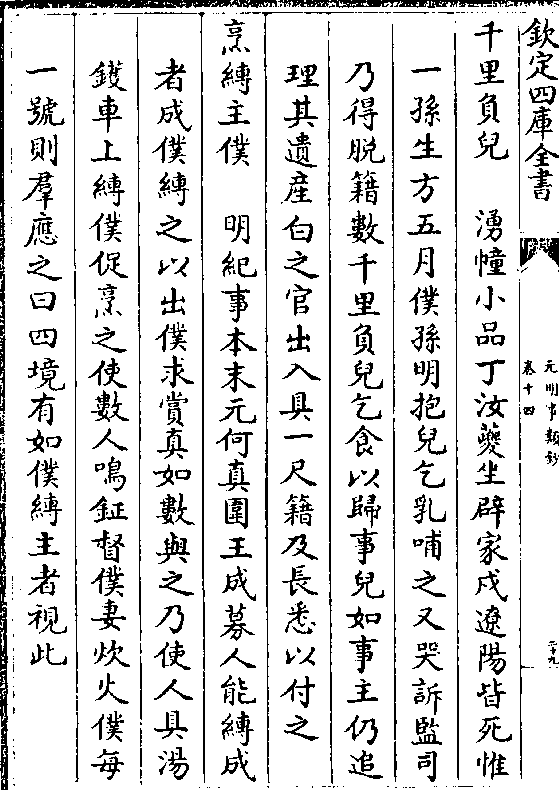 欽定四庫全書
元明事類鈔
卷十四
二十九
千里負兒　湧幢小品丁汝夔坐辟家戍遼陽皆死惟
一孫生方五月僕孫明抱兒乞乳哺之又哭訴監司
乃得脱籍數千里負兒乞食以歸事兒如事主仍追
理其遺産白之官出入具一尺籍及長悉以付之
烹縛主僕　明紀事本末元何真圍王成募人能縛成
者成僕縛之以出僕求賞真如數與之乃使人具湯
鑊車上縛僕促烹之使數人鳴鉦督僕妻炊火僕每
一號則羣應之曰四境有如僕縛主者視此